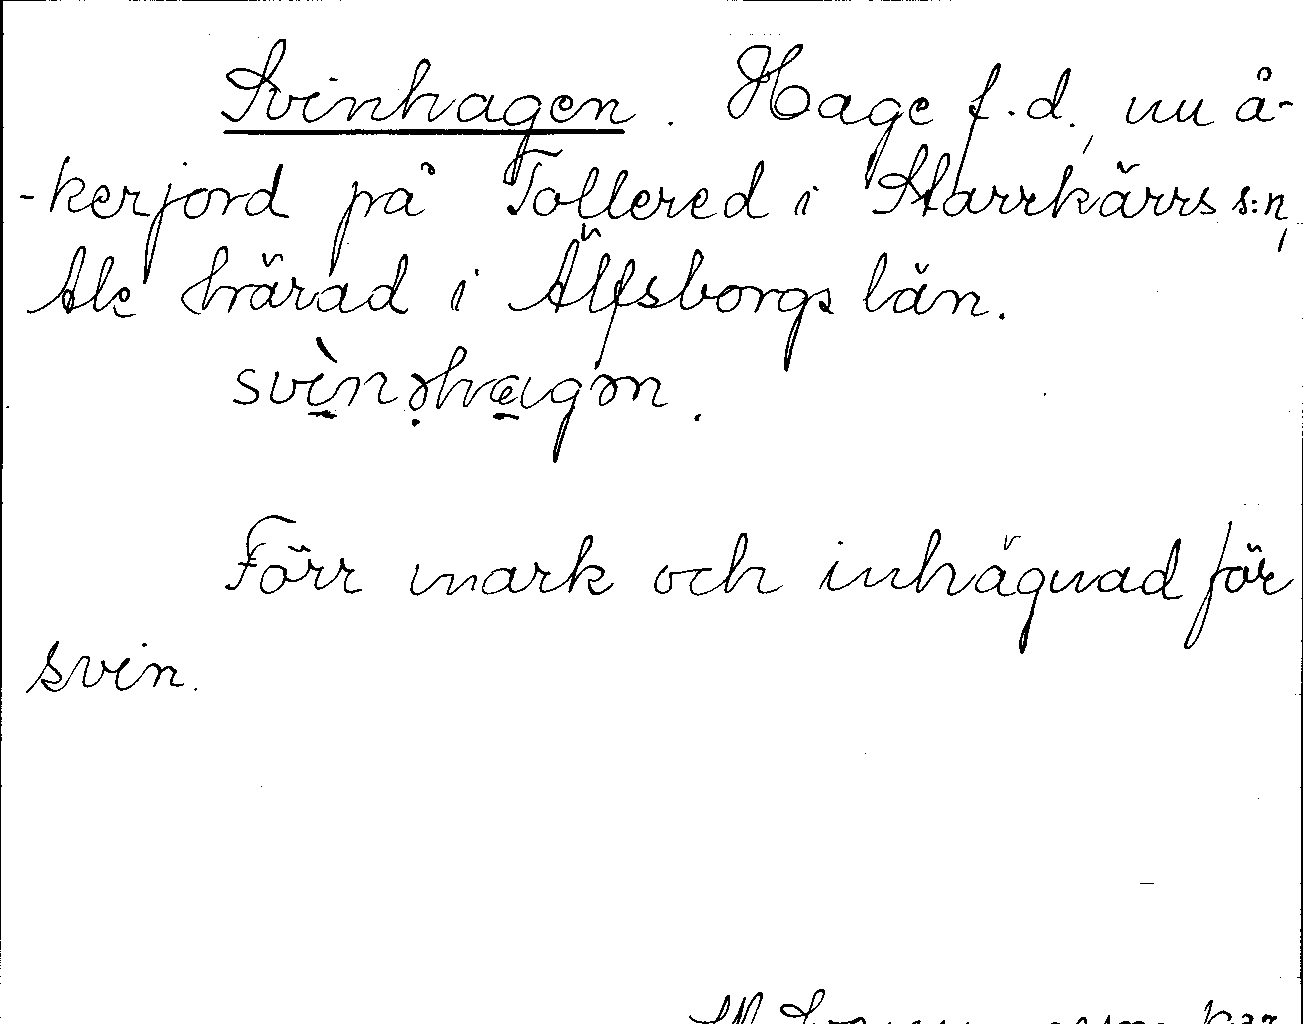 Svinhagen. Hage f.d., nu å-
-kerjord på Tollered i Starrkärrs s:n,
Ale härad i Älfsborgs län.
svìnəhagən.
Förr mark och inhägnad för
svin.